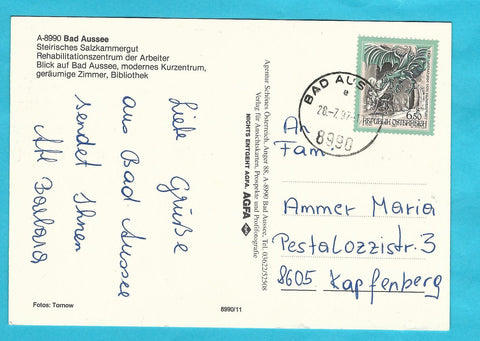 A-8990 Bad Aussee
Steirisches Salzkammergut
Rehabilitationszentrum der Arbeiter
Blick auf Bad Aussee, modernes Kurzentrum,
geräumige Zimmer, Bibliothek
Liebe Grüße
aus Bad Aussee
sendet Ihnen
Barbara
Fotos: Tornow
8990/11
Agentur Schönes Österreich, Anger 88, A-8990 Bad Aussee, Tel. 03622/52508
Verlag für Ansichtskarten, Prospekte und Profifotografie
NICHTS ENTGEHT AGFA. AGFA
BAD AUS
e
8990
6.50
REPUBLIK ÖSTERREICH
An
Fam.
Ammer Maria
Pestalozzistr. 3
8605 Kapfenberg